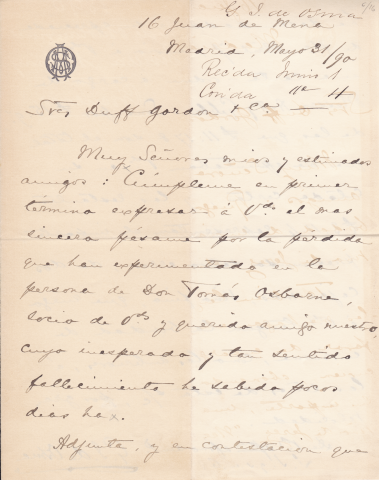 G. J. de Osma
16 Juan de Mena
Madrid, Mayo 31/90
Recida Junio 1
Conda " 4
Sres Duff Gordon & Ca
Muy Señores mios y estimados
amigos: Cúmpleme en primer
término expresar á Vds el mas
sincero pésame por la pérdida
que han experimentado en la
persona de Don Tomás Osborne,
socio de Vds y querido amigo nuestro,
cuyo inesperado y tan sentido
fallecimiento he sabido pocos
dias ha.
Adjunta, y en contestacion que